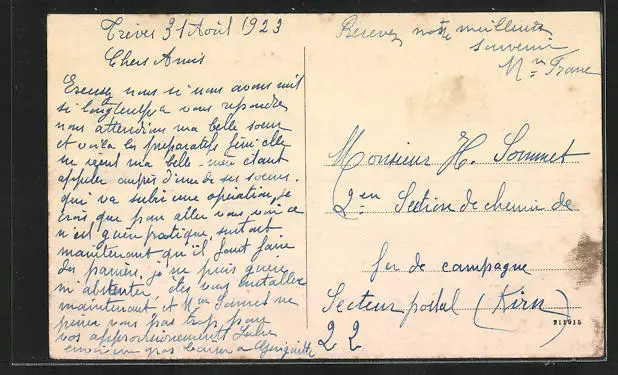 Trèves 31 Août 1923
Chers Amis
Excusez nous si nous avons mit
si longtemps a vous repondre
nous attendions ma belle soeur
et voila les preparatifs fini elle
ne vient ma belle mère étant
appeler auprès d'une de ses soeurs
qui va subir une opération, je
crois que pour aller vous voir ce
n'est guère pratique surtout
maintenant qu'il faut faire
des paniers, je ne puis guère
m'absenter, êtes vous installer
maintenant, et Mme Sommet ne
peine vous pas trop pour
vos approvisionnements
envoie un gros baiser a
Recevez notre meilleurs
souvenir
Mme Franc
Monsieur H. Sommet
2en Section de chemin de
fer de campagne
Secteur postal (Kirn)
22
211915